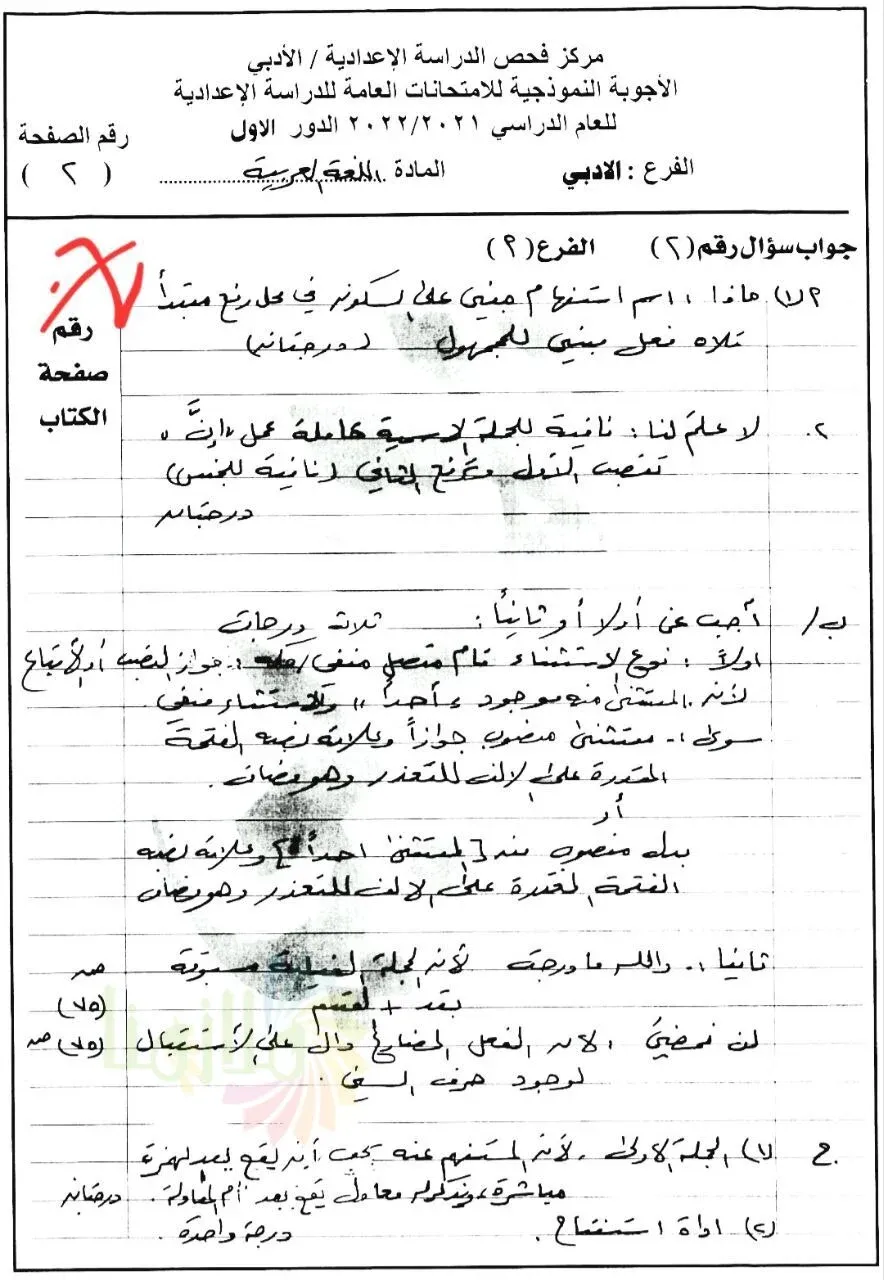 مركز فحص الدراسة الإعدادية / الأدبي
الأجوبة النموذجية للامتحانات العامة للدراسة الإعدادية
للعام الدراسي ٢٠٢٢/٢٠٢١ الدور الاول
رقم الصفحة
( ٢ )
الفرع : الادبي المادة اللغة العربية
جواب سؤال رقم (٢) الفرع (٢)
رقم صفحة الكتاب
٢/ ١) ماذا : اسم استفهام مبني على السكون في محل رفع مبتدأ
تلاه فعل مبني للمجهول (درجتان)
٢. لا علمَ لنا : نافية للجملة الاسمية عاملة عمل "إنَّ"
تنصب الاول وترفع الثاني (نافية للجنس)
درجتان
ب/ أجب عن أولا أو ثانياً : ثلاث درجات
اولاً : نوع الاستثناء تام متصل منفي / حكمه : جواز النصب أو الأتباع
لأن المستثنى منه موجود "أحداً" والاستثناء منفي.
سوى :- مستثنى منصوب جوازاً وعلامة نصبه الفتحة
المقدرة على الالف للتعذر وهو مضاف.
أو
بدل منصوب من المستثنى احداً وعلامة نصبه
الفتحة المقدرة على الالف للتعذر وهو مضاف
ثانيا :. والله ما درجت لأن الجملة الفعلية مسبوقة صـ
بقد + القسم (٧٥)
لن نمضيَ : لان الفعل المضارع دال على الأستقبال صـ (٧٥)
لوجود حرف السين .
ج ١) الجملة الاولى . لأن المستفهم عنه يجب أن يقع بعد الهمزة
مباشرة ويذكر له معادل يقع بعد أم المعادلة . درجتان
(٢) اداة استفتاح . درجة واحدة
ملازمنا